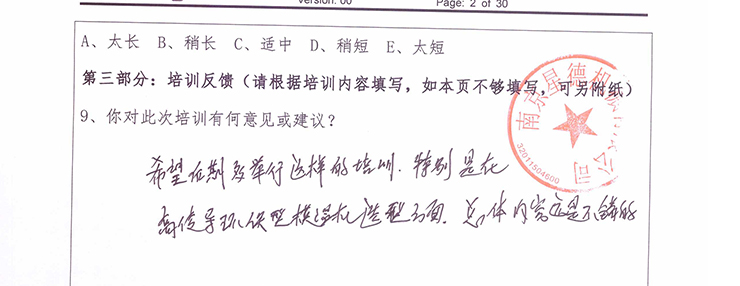 Version: 00 Page: 2 of 30
A、太长 B、稍长 C、适中 D、稍短 E、太短
第三部分：培训反馈（请根据培训内容填写，如本页不够填写，可另附纸）
9、你对此次培训有何意见或建议？
希望 举行这样的培训．特别是在
造型方面．总体内容还是不错的
南京星德机 公司
32011504600